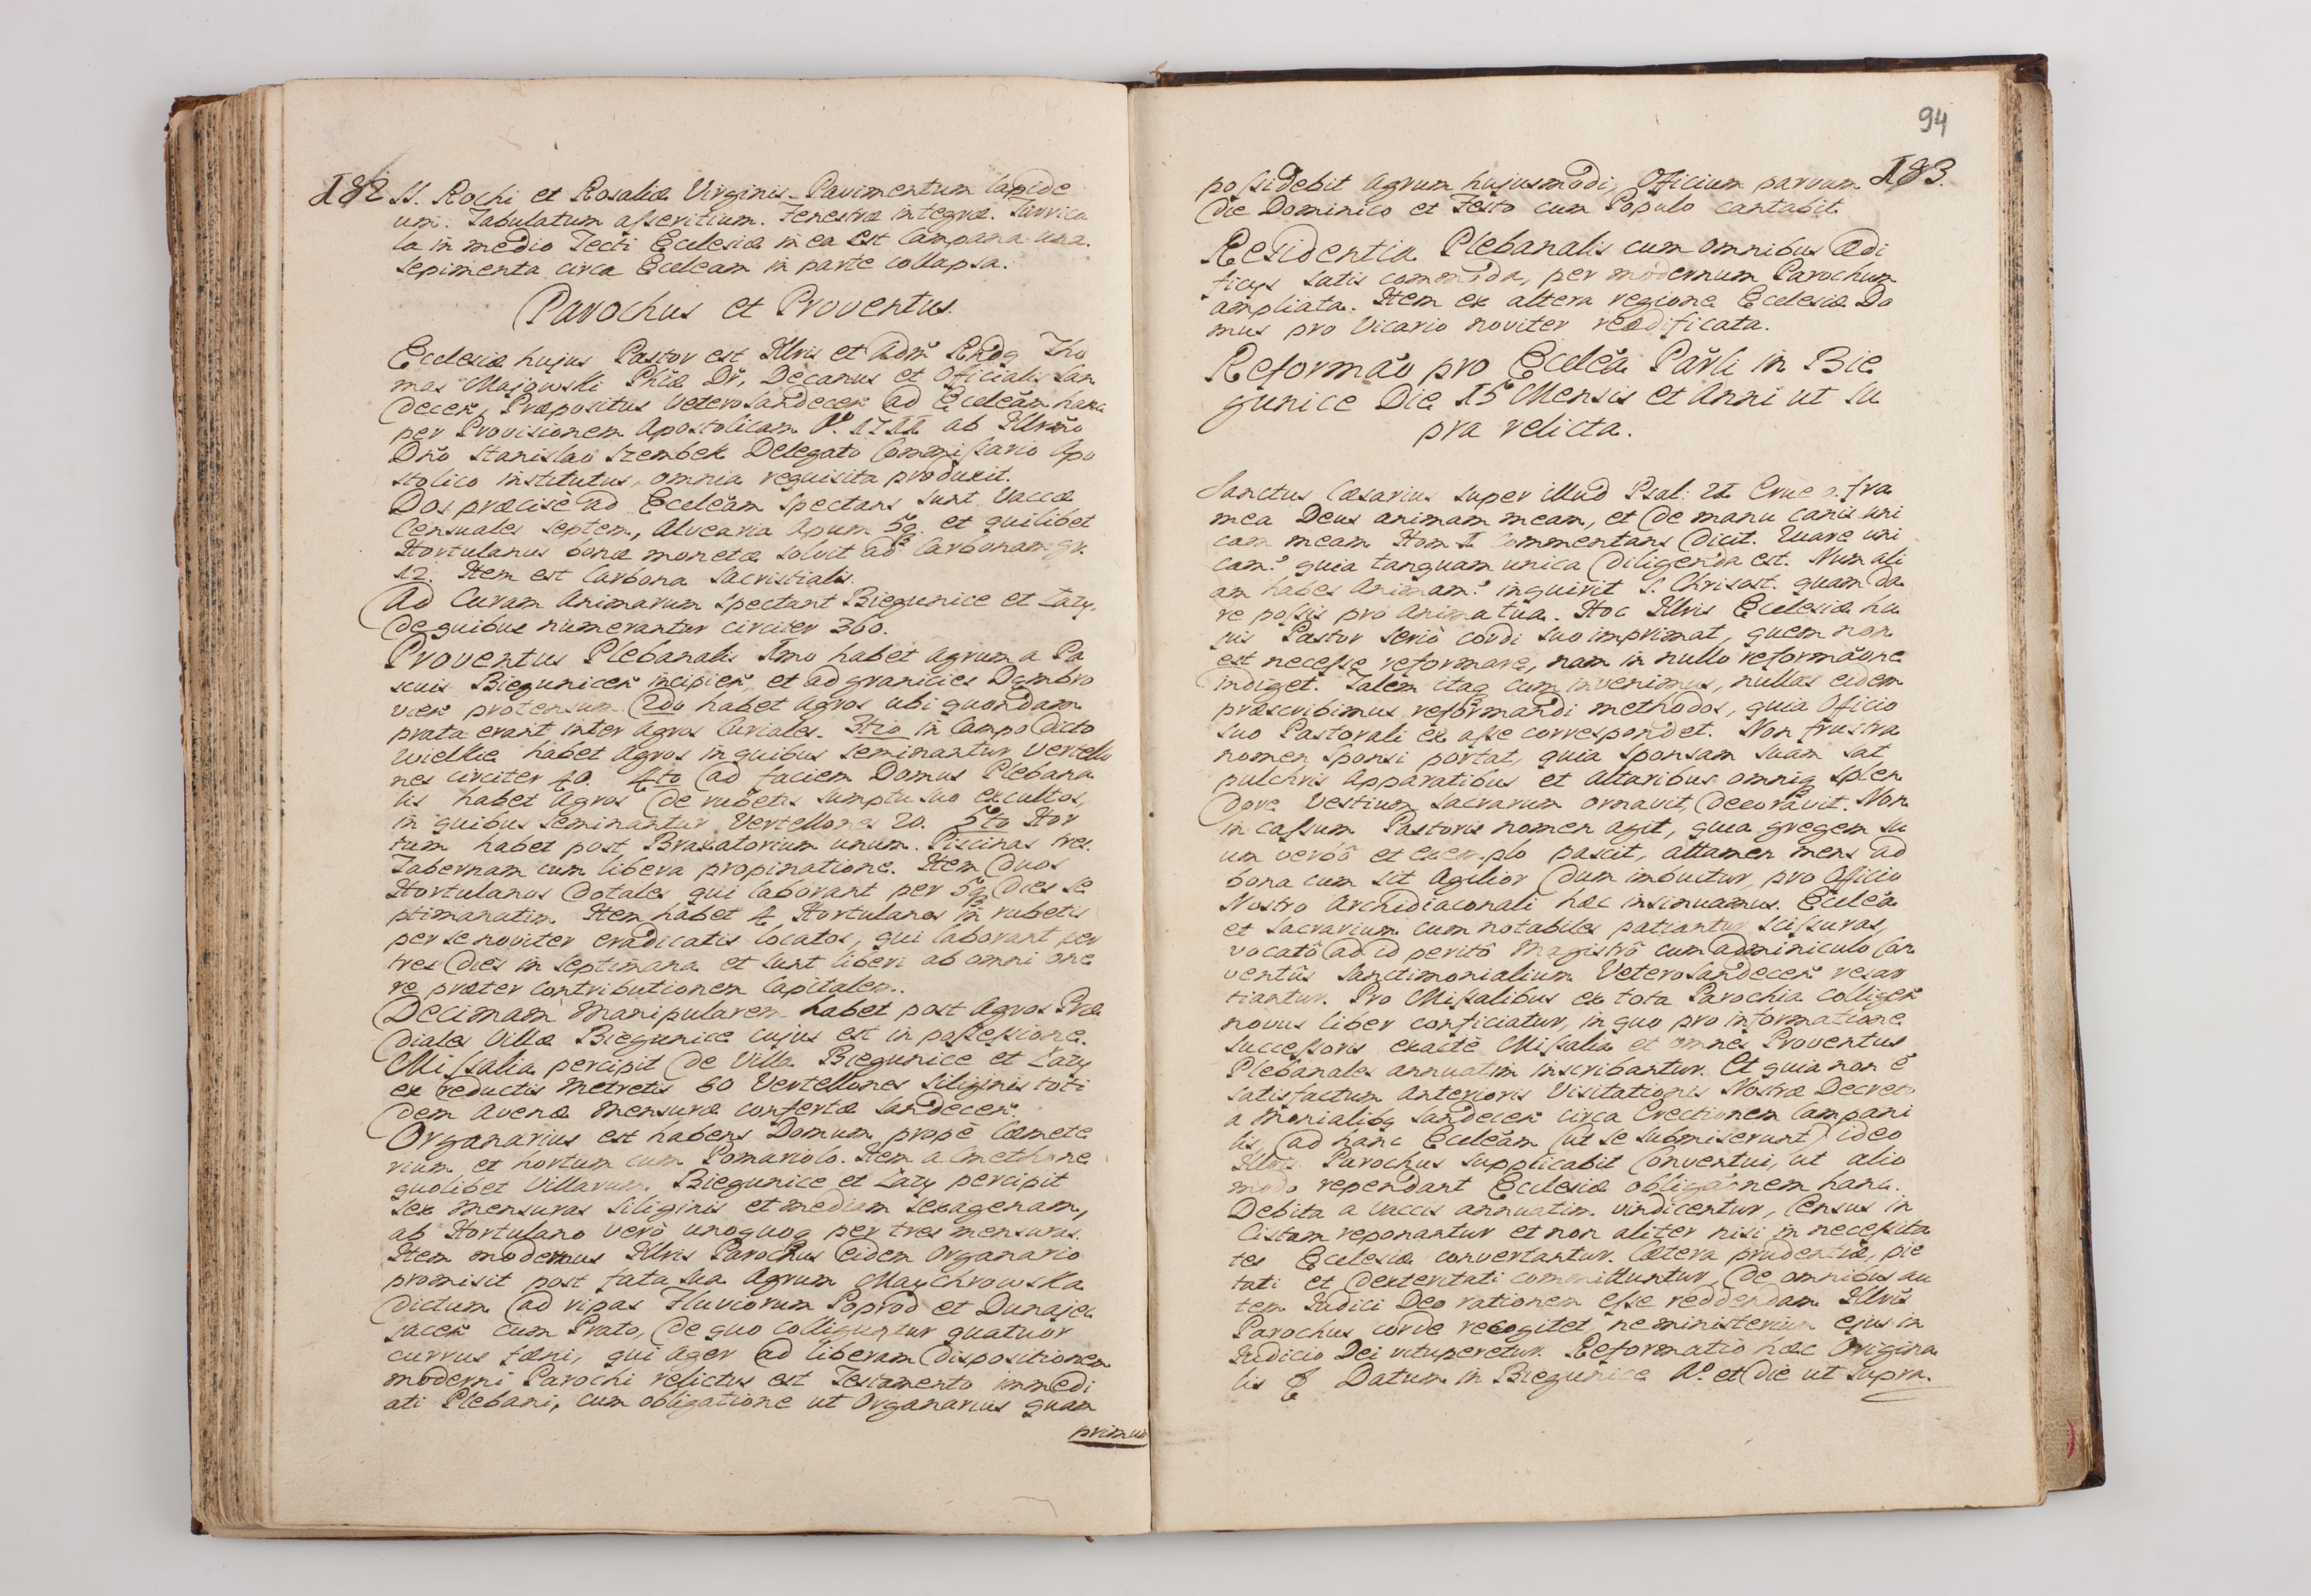 182 SS. Rochi et Rosaliæ Virginis. Pavimentum lapide
um. Tabulatum asseritium. Fenestræ integræ. Turricu
la in medio Tecti Ecclesiæ in ea est Campana una.
Sepimenta circa Eccleam in parte collapsa.
Parochus et Proventus.
Ecclesiæ hujus Pastor est Illris et Adm Rndq Tho
mas Majowski Phiæ Dr, Decanus et Officialis San
decen, Præpositus Vetero Sandecen ad Eccleam hanc
per Provisionem Apostolicam A. 1711 ab Illrmo
Dno Stanislao Szembek Delegato Commissario Apo
stolico institutus, omnia requisita produxit.
Dos præcise ad Eccleam Spectans sunt Vaccæ
Censuales septem, Alvearia Apum 5q et quilibet
Hortulanus bonæ monetæ solvit ad Carbonam gr.
12. Item est Carbona Sacristialis.
Ad Curam Animarum Spectant Biegunice et Łazy,
de quibus numerantur circiter 360.
Proventus Plebanalis Imo habet agrum a Pa
scuis Biegunicen incipien, et ad granicies Dąmbro
vien protensum. 2do habet Agros ubi quondam
prata erant inter Agros Curiales. 3tio in Campo dicto
Wielkie habet Agros in quibus seminantur Vertello
nes circiter 40. 4to ad faciem Domus Plebana
lis habet Agros de rubetis sumptu suo excultos,
in quibus seminantur Vertellones 20. 5to Hor
tum habet post Braxatorium unum. Piscinas tres.
Tabernam cum libera propinatione. Item duos
Hortulanos dotales qui laborant per 5q dies se
ptimanatim. Item habet 4 Hortulanos in rubetis
per se noviter eradicatis locatos, qui laborant per
tres dies in septimana et sunt liberi ab omni one
re præter contributionem Capitalem.
Decimam Manipularem habet post Agros Præ
diales Villæ Biegunice cujus est in possessione.
Missalia percipit de Villa Biegunice et Łazy
ex reductis metretis 60 Vertellones Siliginis toti
dem Avenæ mensuræ confertæ Sandecen.
Organarius est habens Domum prope Cœmete
rium et hortum cum Pomariolo. Item a Cmethone
quolibet Villarum Biegunice et Łazy percipit
sex mensuras siliginis et mediam sexagenam,
ab Hortulano vero unoquoq per tres mensuras.
Item modernus Illris Parochus eidem Organario
promisit post fata sua Agrum Maychrowska
dictum ad ripas Fluviorum Poprod et Dunajec
jacen cum Prato, de quo colliguntur quatuor
currus fæni, qui Ager ad liberam dispositionem
moderni Parochi relictus est Testamento immedi
ati Plebani, cum obligatione ut Organarius quam
primum
94
possidebit agrum hujusmodi, Officium parvum 183.
die Dominico et Festo cum Populo cantabit.
Residentia Plebanalis cum omnibus Ædi
ficys satis commoda, per modernum Parochum
ampliata. Item ex altera regione Ecclesiæ Do
mus pro Vicario noviter reædificata.
Reformao pro Ecclea Parli in Bie
gunice Die 15 Mensis et Anni ut su
pra relicta.
Sanctus Cæsarius super illud Psal: 21 Erue a fra
mea Deus animam meam, et de manu canis uni
cam meam Hom Commentans dicit. Quare uni
cam? quia tanquam unica diligenda est. Num ali
am habes Animam? inquirit S. Chrisost. quam da
re possis pro Anima tua. Hoc Illris Ecclesiæ hu
jus Pastor serio cordi suo imprimat, quem non
est necesse reformare, nam in nullo reformaone
indiget. Talem itaq cum invenimus, nullas eidem
præscribimus reformandi methodos, quia Officio
suo Pastorali ex asse correspondet. Non frustra
nomen Sponsi portat, quia Sponsam suam sat
pulchris Apparatibus et Altaribus omniq splen
dore Vestium Sacrarum ornavit, decoravit. Non
in cassum Pastoris nomen agit, quia gregem su
um verbô et exemplo pascit, attamen mens ad
bona cum sit agilior dum imbuitur, pro Officio
Nostro Archidiaconali hæc insinuamus. Ecclea
et Sacrarium cum notabiles patiantur scissuras,
vocatô ad id peritô Magistrô cum adminiculo Con
ventûs Sanctimonialium Vetero Sandecen resar
tiantur. Pro Missalibus ex tota Parochia colligen
novus liber conficiatur, in quo pro informatione
Successoris exacte Missalia et omnes Proventus
Plebanales annuatim inscribantur. Et quia non ê
satisfactum Anterioris Visitationis Nostræ Decreto
a Monialibq Sandecen circa Erectionem Campani
lis, ad hanc Eccleam (ut se submiserunt) ideo
Illris Parochus supplicabit Conventui, ut alio
modo rependant Ecclesiæ obligaonem hanc.
Debita a Vaccis annuatim vindicentur, Census in
Cistam reponantur et non aliter nisi in necessita
tes Ecclesiæ convertantur. Cætera prudentiæ, pie
tati et dexteritati committuntur, de omnibus au
tem Judici Deo rationem esse reddendam Illris
Parochus corde recogitet, ne ministerium ejus in
Judicio Dei vituperetur. Reformatio hæc Origina
lis & Datum in Biegunice A. et die ut supra.